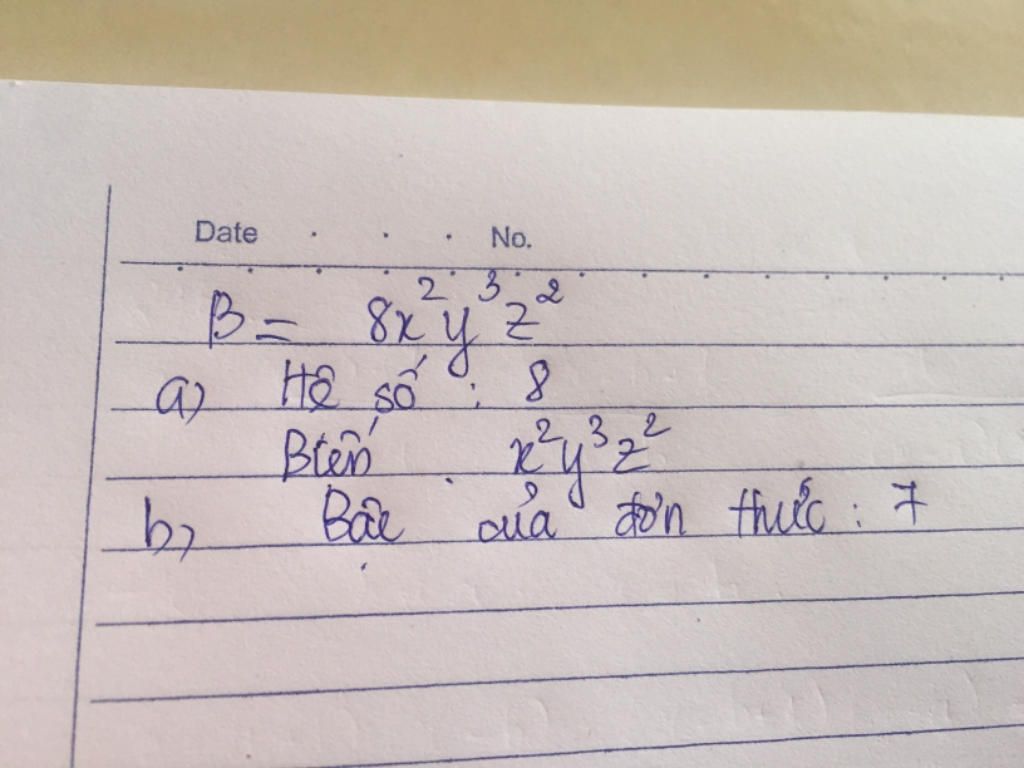 Date . . . No.
B = 8x²y³z²
a) Hệ số : 8
Biến : x²y³z²
b) Bậc của đơn thức : 7